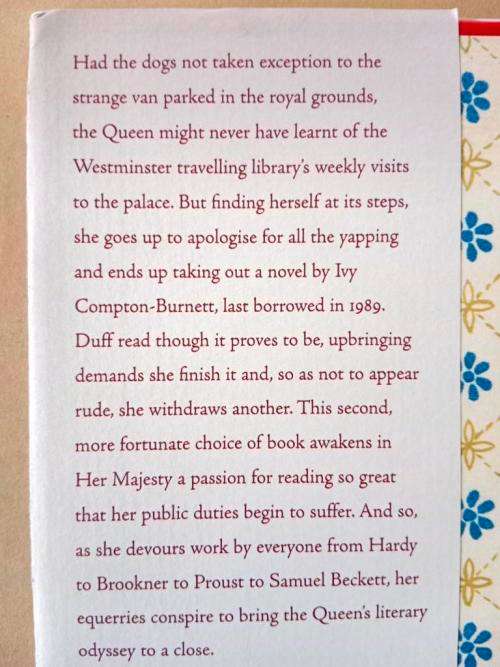 Had the dogs not taken exception to the
strange van parked in the royal grounds,
the Queen might never have learnt of the
Westminster travelling library's weekly visits
to the palace. But finding herself at its steps,
she goes up to apologise for all the yapping
and ends up taking out a novel by Ivy
Compton-Burnett, last borrowed in 1989.
Duff read though it proves to be, upbringing
demands she finish it and, so as not to appear
rude, she withdraws another. This second,
more fortunate choice of book awakens in
Her Majesty a passion for reading so great
that her public duties begin to suffer. And so,
as she devours work by everyone from Hardy
to Brookner to Proust to Samuel Beckett, her
equerries conspire to bring the Queen's literary
odyssey to a close.